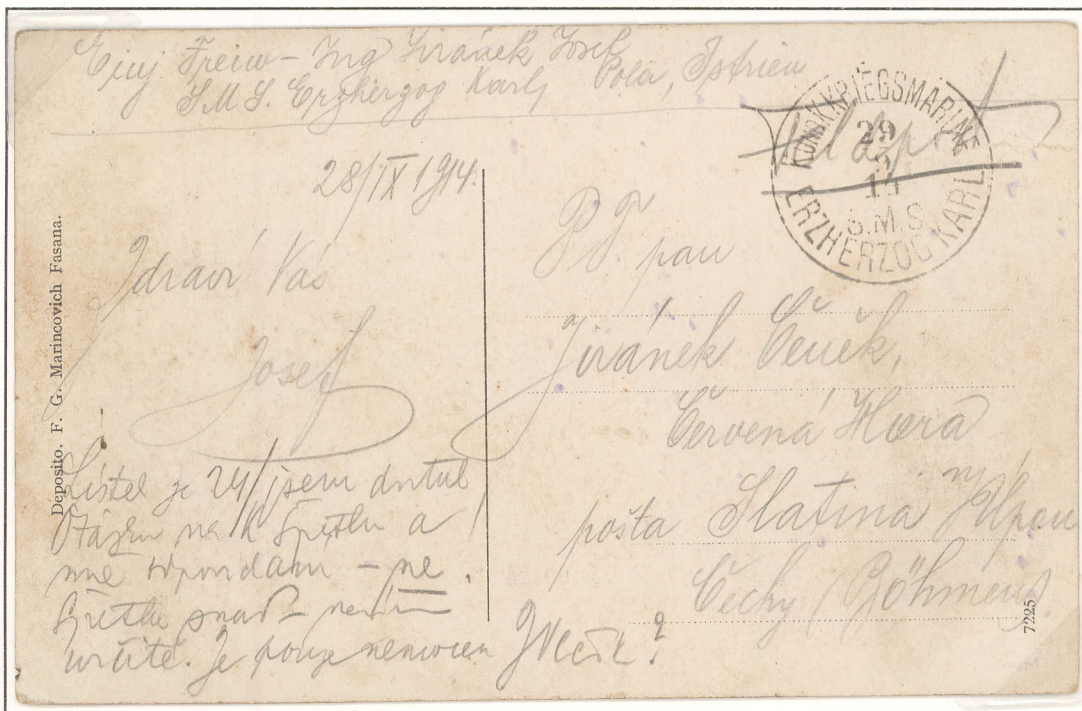 Einj Freiw - Ing Jiránek Josef
S.M.S. Erzherzog Karl, Pola, Istrien
K.UND K. KRIEGSMARINE
29
S.M.S.
ERZHERZOG KARL
Feldpost
28/IX 1914.
Zdraví Vás
Josef
Lístek ze 24/ jsem dostal
Otázku na k a
mně odpovídám – ne.
snad –
určitě. Je pouze nemocen
P.T. pan
Jiránek Čeněk,
Červená Hora
pošta Slatina n/Úpou
Čechy (Böhmen)
Deposito. F. G. Marincovich Fasana.
7225